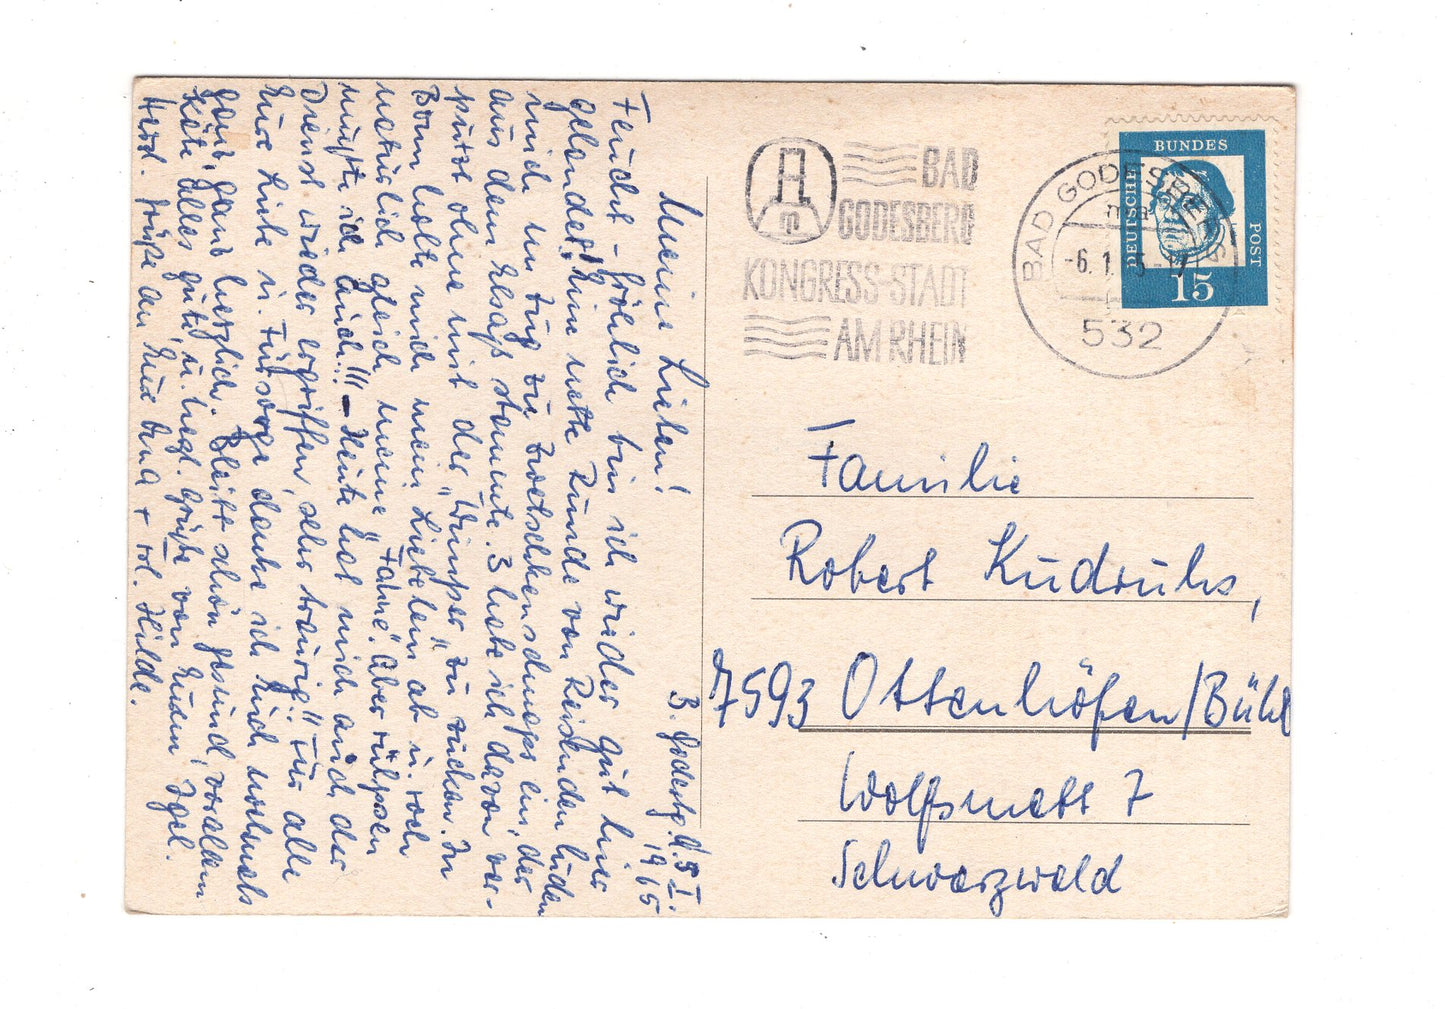 B. Godesbg. d. 5. I.
1965
Meine Lieben!
Feucht – fröhlich bin ich wieder gut hier
gelandet! Eine nette Runde von Reisenden luden
mich im Zug zu Zwetschenschnaps ein, der
aus dem Elsaß stammte. 3 habe ich davon ver-
putzt ohne mit der "Wimper" zu zucken. In
Bonn holte mich mein "Liebelein" ab u. roch
natürlich gleich meine "Fahne". Aber rülpsen
mußte ich auch!!! – Heute hat mich auch der
Dienst wieder ergriffen, sehr traurig! Für alle
Eure Liebe u. Fürsorge danke ich Euch nochmals
ganz, ganz herzlich. Bleibt schön gesund, vor allem
Käte alles gute u. herzl. Grüße von Eurem Igel.
Herd. Grüße an Eure Oma + Hilde.
BAD
GODESBERG
KONGRESS-STADT
AM RHEIN
BAD GODESBERG
-6.1.65-17
532
DEUTSCHE
BUNDES
POST
15
Familie
Robert Kudruhs,
7593 Ottenhöfen/Bühl
Wolfsmatt 7
Schwarzwald